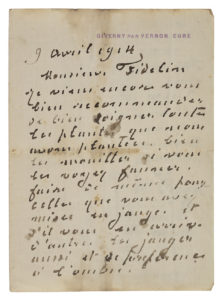 GIVERNY PAR VERNON EURE
9 avril 1914
Monsieur Fidelin
je viens encore vous
bien recommander
de bien soigner toutes
les plantes que nous
avons plantées, bien
les mouiller si vous
les voyez fanner,
faire de même pour
celles que vous avez
mises en jauge. et
s'il vous en arrive
d'autres les jauger
aussi et de préférence
à l'ombre.